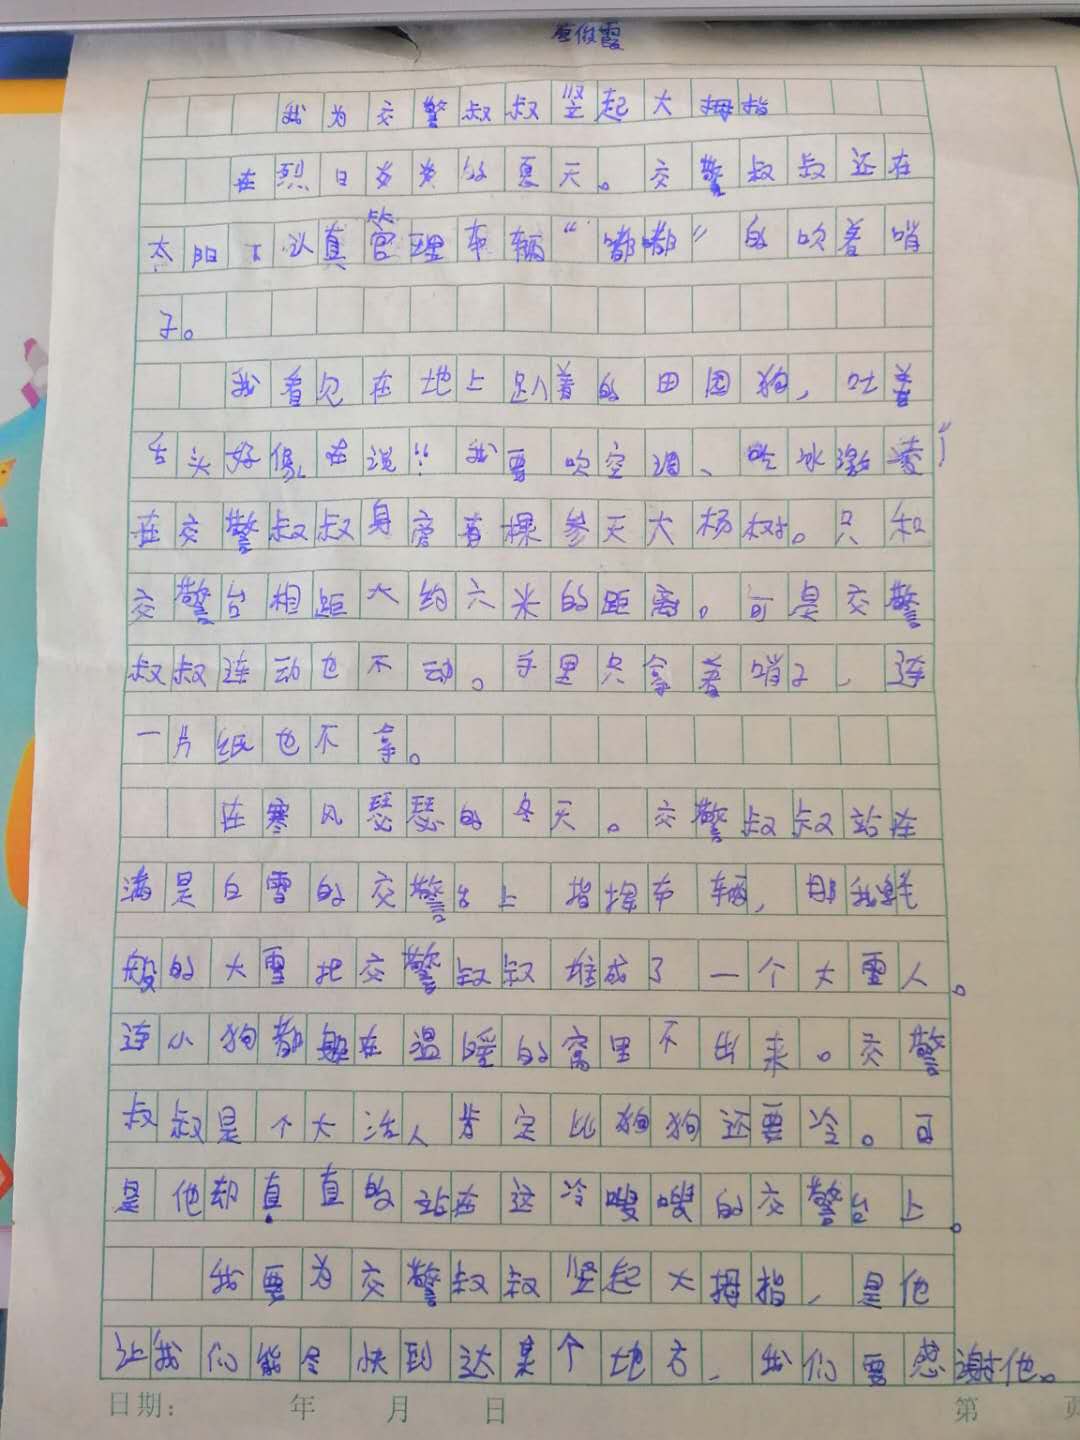 我为交警叔叔竖起大拇指
在烈日炎炎的夏天。交警叔叔还在
太阳下认真管理车辆“嘟嘟”的吹着哨
子。
我看见在地上趴着的田园狗,吐着
舌头好像在说“我要吹空调、吃冰激凌”
在交警叔叔身旁有棵参天大杨树。只和
交警台相距大约六米的距离。可是交警
叔叔连动也不动。手里只拿着哨子,连
一片纸也不拿。
在寒风瑟瑟的冬天。交警叔叔站在
满是白雪的交警台上 指挥车辆,那鹅毛
般的大雪把交警叔叔堆成了一个大雪人。
连小狗都躲在温暖的窝里不出来。交警
叔叔是个大活人肯定比狗狗还要冷。可
是他却直直的站在这冷嗖嗖的交警台上。
我要为交警叔叔竖起大拇指,是他
让我们能全快到达某个地方,我们要感谢他。
日期: 年 月 日 第 页